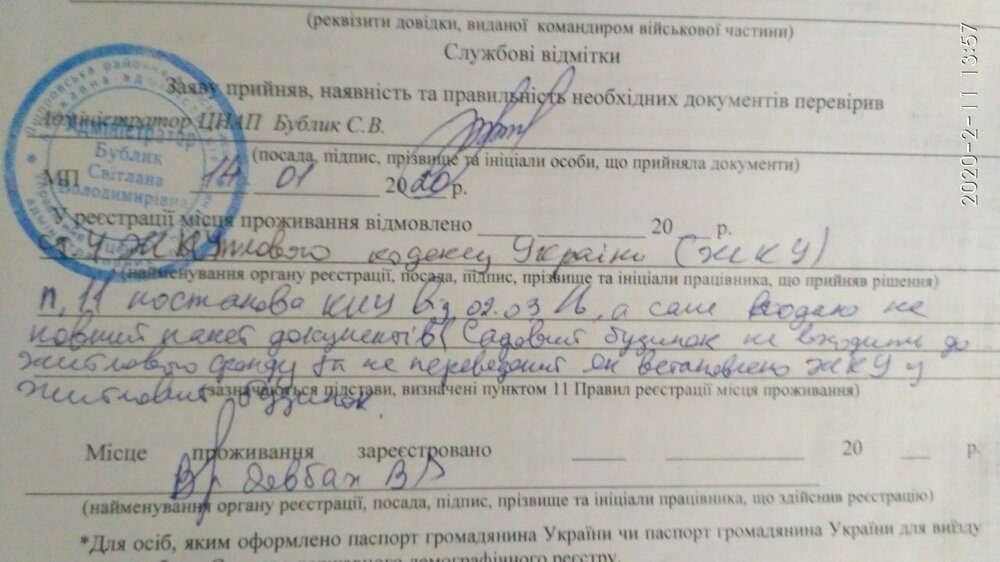 (реквізити довідки, виданої командиром військової частини)
Службові відмітки
Заяву прийняв, наявність та правильність необхідних документів перевірив
Адміністратор ЦНАП Бублик С.В.
(посада, підпис, прізвище та ініціали особи, що прийняла документи)
МП 14 01 2020 р.
Адміністратор
Бублик
Світлана
Володимирівна
У реєстрації місця проживання відмовлено 20 р.
ст. 4 ЖКУ кодексу України (ЖКУ)
(найменування органу реєстрації, посада, підпис, прізвище та ініціали працівника, що прийняв рішення)
п. 11 постанова КМУ від 02.03 а саме не
повний пакет документів Садовий будинок не входить до
житлового фонду та не переведений як встановлено ЖКУ у
(зазначаються підстави, визначені пунктом 11 Правил реєстрації місця проживання)
житловий будинок.
Місце проживання зареєстровано 20 р.
(найменування органу реєстрації, посада, підпис, прізвище та ініціали працівника, що здійснив реєстрацію)
*Для осіб, яким оформлено паспорт громадянина України чи паспорт громадянина України для виїзду
державного демографічного реєстру.
2020-2-11 13:57